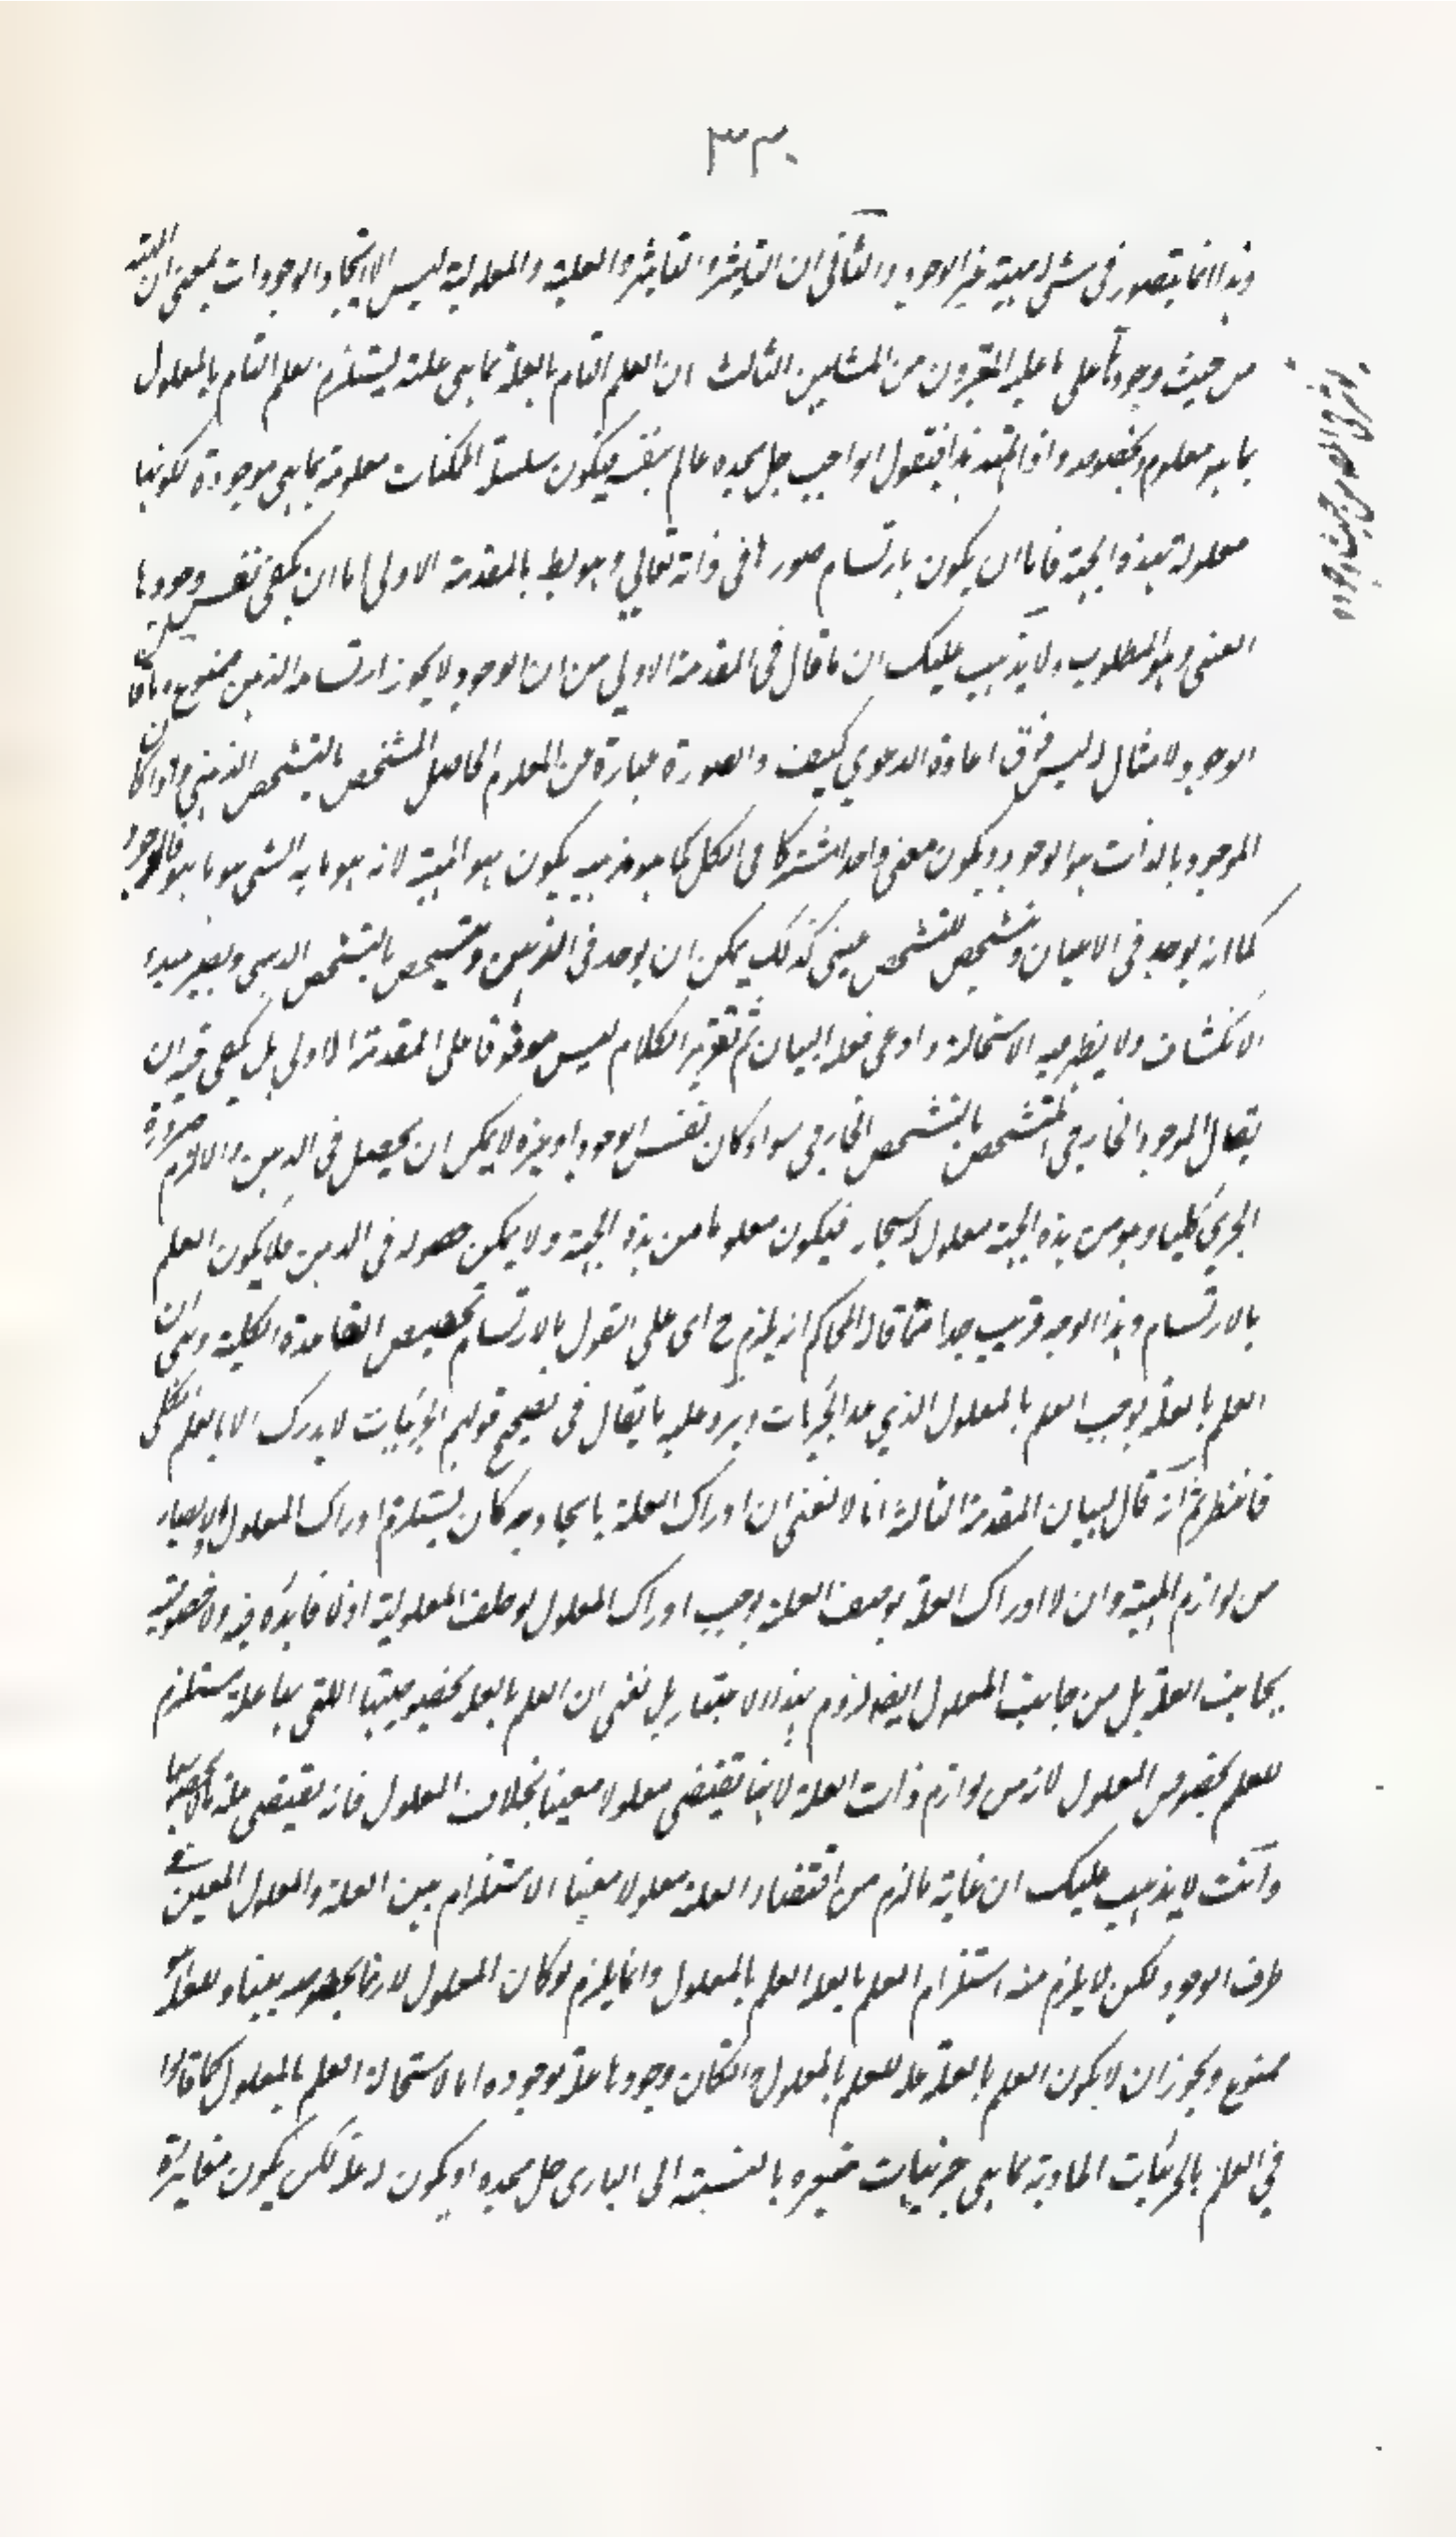 ٣٣٠
وهذا انما يتصور في شيء له مهية غير الوجود والثاني ان التاثير والتاثر والعلية والمعلولية ليس الا لايجاد الوجودات بمعنى ان العلية
من حيث وجودها على ما عليه المقررون من المشائين الثالث ان العلم التام بالعلة بما هي علة يستلزم العلم التام بالمعلول
بما هو معلوم وبخصوصه واذا تمهد هذا فنقول الواجب جل مجده عالم بنفسه فيكون سلسلة الممكنات معلومة بما هي موجودة لكونها
معلولة بهذه الجهة فاما ان يكون بارتسام صورها في ذاته تعالى وهو بط بالمقدمة الاولى اما ان يكفي نفس وجودها
العيني وهو المطلوب ولا يذهب عليك ان ما قال في المقدمة الاولى من ان الوجود لا يجوز ارتسامه في الذهن ممنوع وما قال من ان
الوجود لا مثال له ليس فوق اعادة الدعوى كيف والصورة عبارة عن المعلوم الحاصل المتشخص بالتشخص الذهني واذا كان
الموجود بالذات هو الوجود ويكون معنى واحدا مشتركا في الكل كما هو مذهبه يكون هو المهية لانه هو ما به الشيء هو ما هو فالوجود
كما انه يوجد في الاعيان ويتشخص بتشخص عيني كذلك يمكن ان يوجد في الذهن ويتشخص بالتشخص الذهني ويصير مبدء
الانكشاف ولا يظهر فيه الاستحالة وادعى فعليه البيان ثم تقرير الكلام ليس موقوفا على المقدمة الاولى بل يكفي فيه ان
يقال الموجود الخارجي المتشخص بالتشخص الخارجي سواء كان نفس الوجود او غيره لا يمكن ان يحصل في الذهن والا لزم صيرورة
الجزئي كليا وهو من هذه الجهة معلول له سبحانه فيكون معلوما من هذه الجهة ولا يمكن حصوله في الذهن فلا يكون العلم
بالارتسام وهذا الوجه قريب جدا مما قاله المحاكم انه يلزم ح اي على القول بالارتسام تخصيص القاعدة الكلية وهي ان
العلم بالعلة يوجب العلم بالمعلول الذي عدا الجزئيات ويرد عليه ما يقال في تصحيح قولهم الجزئيات لا يدرك الا بالعلم الكلي
فانتظر ثم انه قال لبيان المقدمة الثالثة انا لا نعني ان ادراك العلة بايجاد فيه كان يستلزم ادراك المعلول
من لوازم المهية وان لا ادراك العلة بوصف العلة يوجب ادراك المعلول بوصف المعلولية اذ لا فائدة فيه ولا خصوصية
بجانب العلة بل من جانب المعلول ايضا لزوم بهذا الاعتبار بل نعني ان العلم بالعلة بخصوصيتها اللتي بها علة يستلزم
للعلم بخصوص المعلول لانه من لوازم ذات العلة لانها تقتضي معلولا معينا بخلاف المعلول فانه يقتضي علة ما لا بخصوصها
وانت لا يذهب عليك ان غاية ما لزم من اقتضاء العلة معلولا معينا الاستلزام بين العلة والمعلول المعين في
طرف الوجود لكن لا يلزم منه استلزام العلم بالعلة العلم بالمعلول وانما يلزم لو كان المعلول لازما بخصوصه بينا وللعلة
ممنوع ويجوز ان لا يكون العلم بالعلة علة للعلم بالمعلول وان كان وجودها علة لوجوده اما لاستحالة العلم بالمعلول كما قالوا
في العلم بالجزئيات المادية بما هي جزئيات متغيرة بالنسبة الى الباري جل مجده او يكون له علة لكن يكون مغايرة